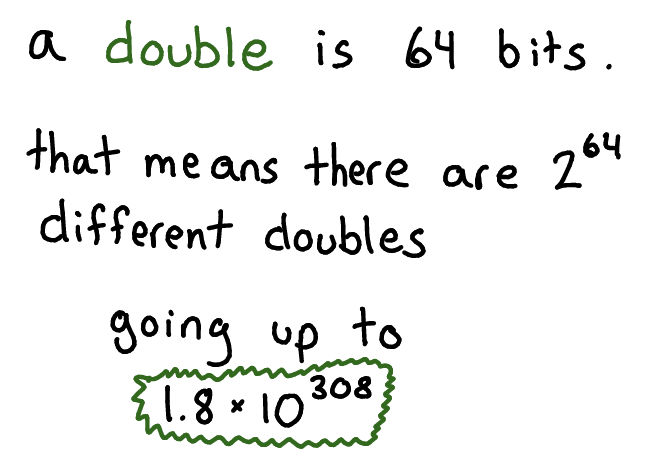 a double is 64 bits.
that means there are 2⁶⁴
different doubles
going up to
1.8 × 10³⁰⁸